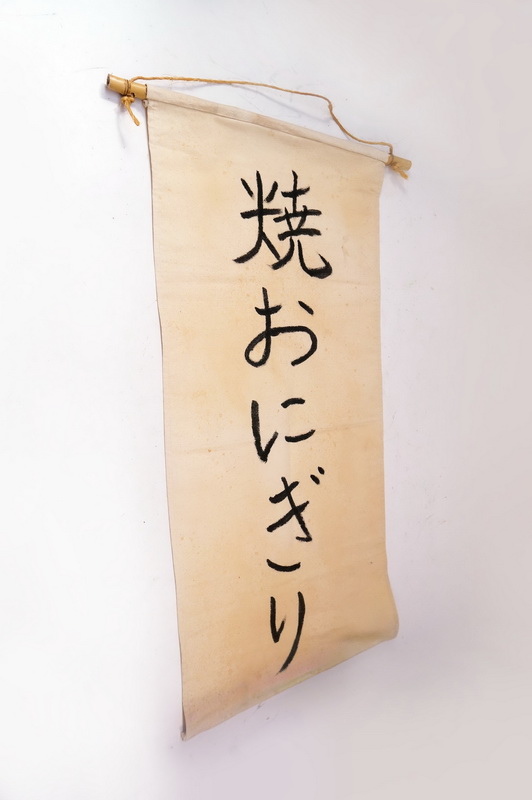 焼おにぎり